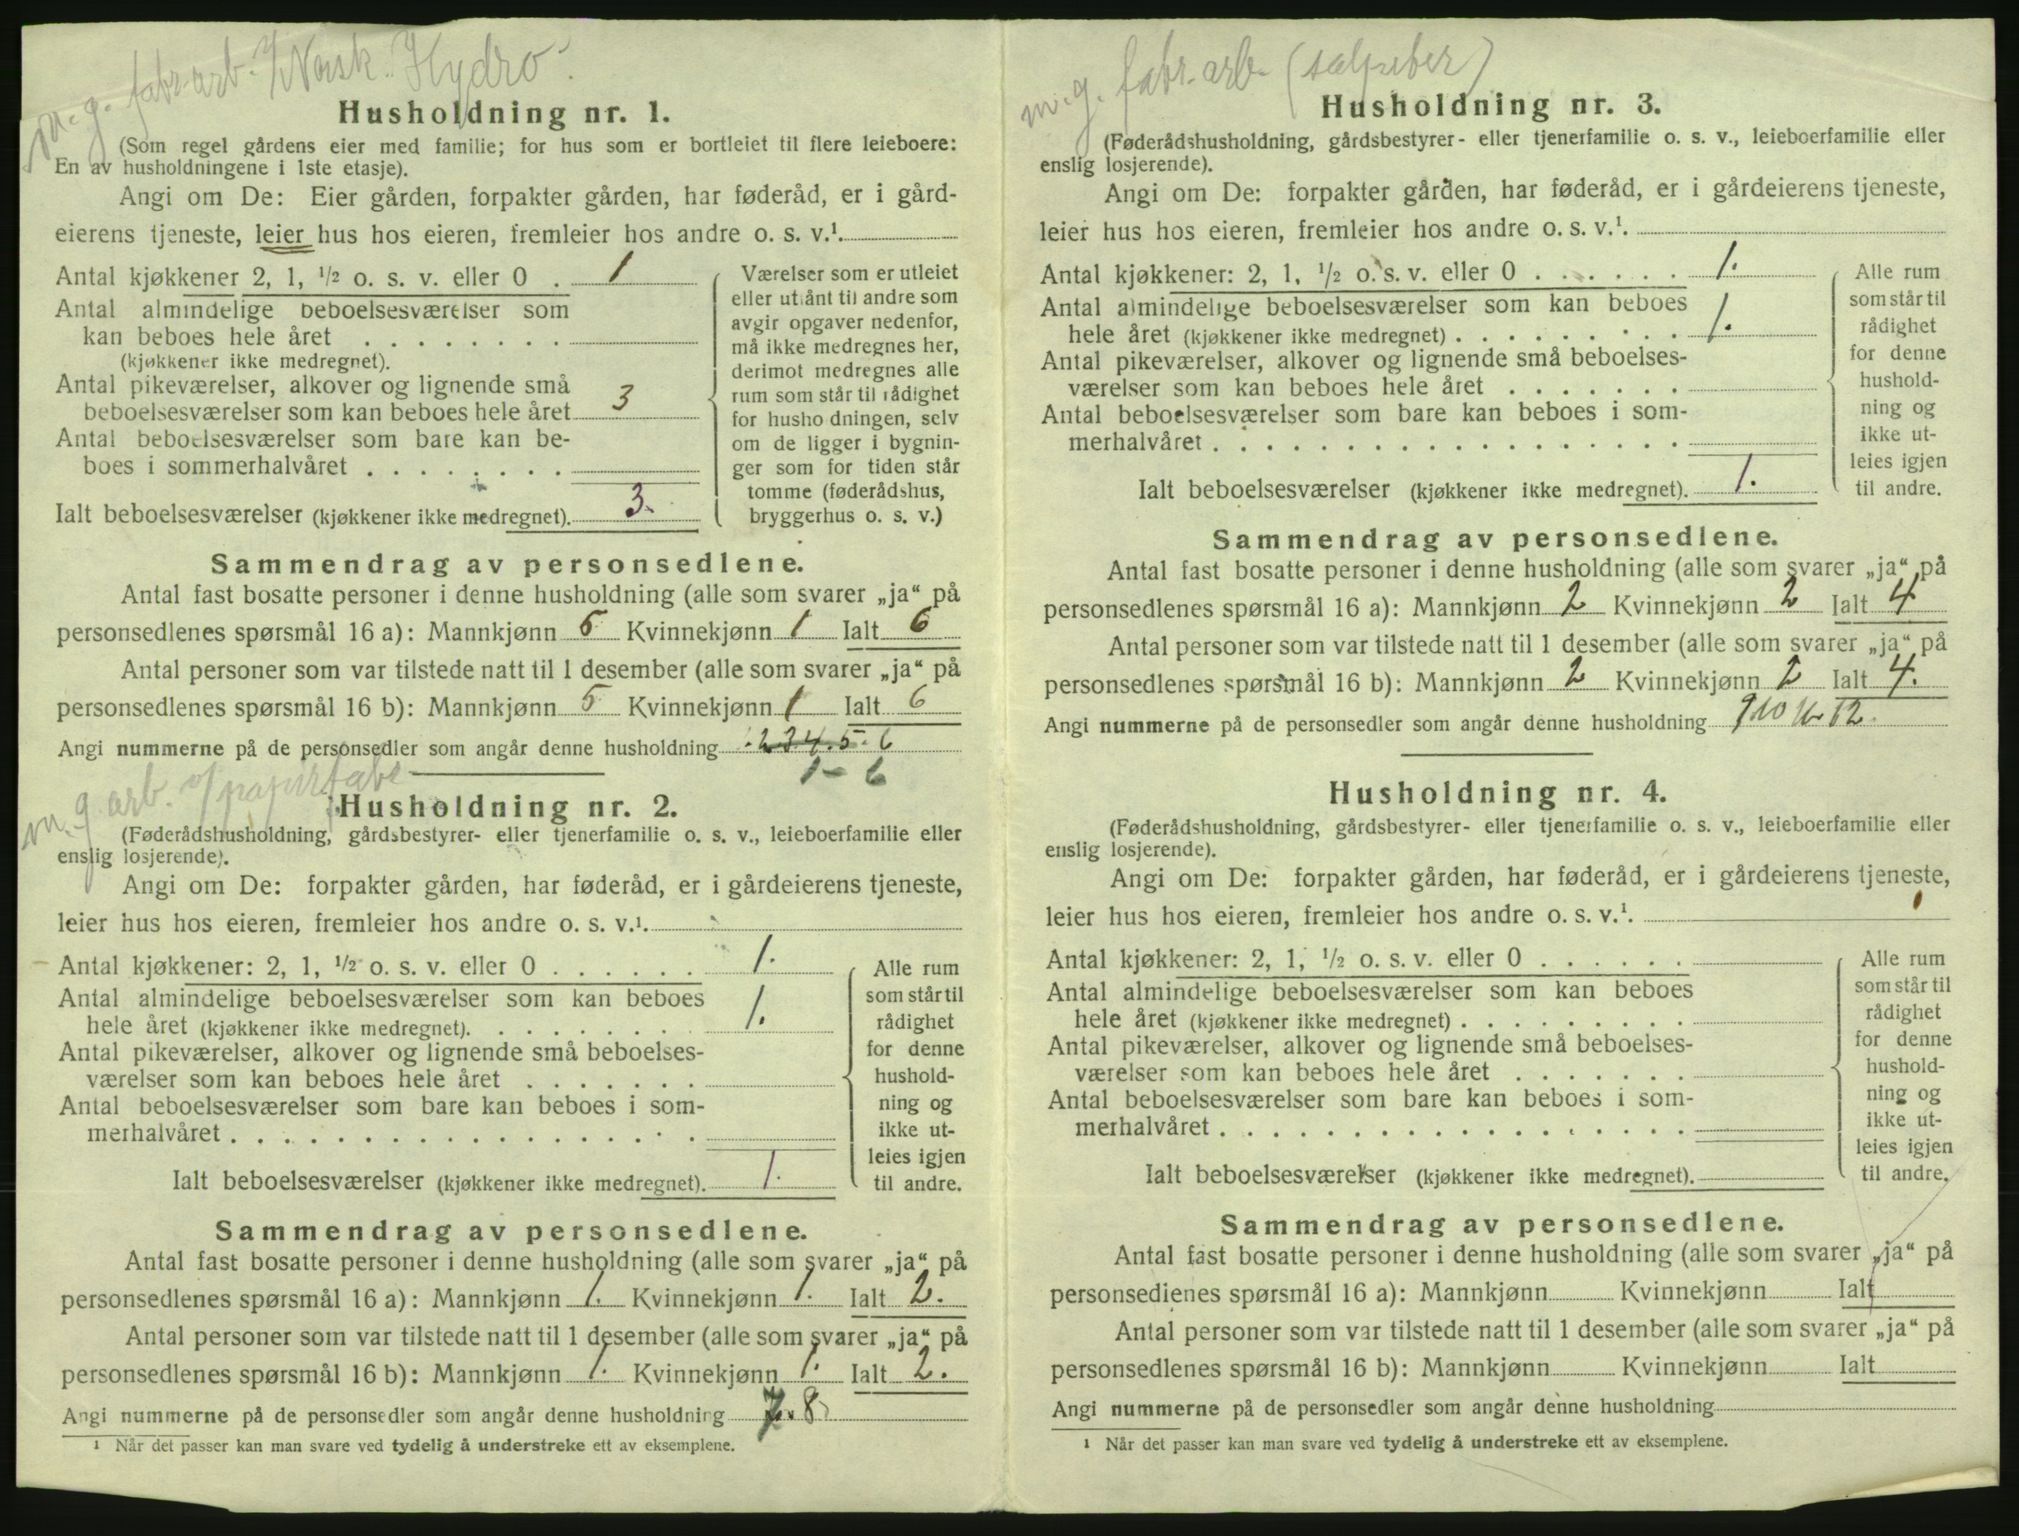 m. g. fabr. arb. v/ Norsk Hydro.
Husholdning nr. 1.
(Som regel gårdens eier med familie; for hus som er bortleiet til flere leieboere:
En av husholdningene i 1ste etasje).
Angi om De: Eier gården, forpakter gården, har føderåd, er i gård-
eierens tjeneste, leier hus hos eieren, fremleier hos andre o. s. v.¹.
Antal kjøkkener 2, 1, ½ o. s. v. eller 0 . 1
Antal almindelige beboelsesværelser som
kan beboes hele året . . . . . . . .
(kjøkkener ikke medregnet).
Antal pikeværelser, alkover og lignende små
beboelsesværelser som kan beboes hele året 3
Antal beboelsesværelser som bare kan be-
boes i sommerhalvåret . . . . . . . .
Ialt beboelsesværelser (kjøkkener ikke medregnet). 3.
Værelser som er utleiet
eller utlånt til andre som
avgir opgaver nedenfor,
må ikke medregnes her,
derimot medregnes alle
rum som står til rådighet
for husholdningen, selv
om de ligger i bygnin-
ger som for tiden står
tomme (føderådshus,
bryggerhus o. s. v.)
Sammendrag av personsedlene.
Antal fast bosatte personer i denne husholdning (alle som svarer „ja“ på
personsedlenes spørsmål 16 a): Mannkjønn 5 Kvinnekjønn 1 Ialt 6
Antal personer som var tilstede natt til 1 desember (alle som svarer „ja“ på
personsedlenes spørsmål 16 b): Mannkjønn 5 Kvinnekjønn 1 Ialt 6
Angi nummerne på de personsedler som angår denne husholdning 1.2 3 4. 5. 6
1 - 6
m. g. arb. v/ papirfabr.
Husholdning nr. 2.
(Føderådshusholdning, gårdsbestyrer- eller tjenerfamilie o. s. v., leieboerfamilie eller
enslig losjerende).
Angi om De: forpakter gården, har føderåd, er i gårdeierens tjeneste,
leier hus hos eieren, fremleier hos andre o. s. v.¹.
Antal kjøkkener: 2, 1, ½ o. s. v. eller 0 . . . . . . 1.
Antal almindelige beboelsesværelser som kan beboes
hele året (kjøkkener ikke medregnet). . . . . . . . . 1.
Antal pikeværelser, alkover og lignende små beboelses-
værelser som kan beboes hele året . . . . . . .
Antal beboelsesværelser som bare kan beboes i som-
merhalvåret . . . . . . . . . . . . . . . . . .
Ialt beboelsesværelser (kjøkkener ikke medregnet). 1.
Alle rum
som står til
rådighet
for denne
hushold-
ning og
ikke ut-
leies igjen
til andre.
Sammendrag av personsedlene.
Antal fast bosatte personer i denne husholdning (alle som svarer „ja“ på
personsedlenes spørsmål 16 a): Mannkjønn 1. Kvinnekjønn 1. Ialt 2.
Antal personer som var tilstede natt til 1 desember (alle som svarer „ja“ på
personsedlenes spørsmål 16 b): Mannkjønn 1. Kvinnekjønn 1. Ialt 2.
Angi nummerne på de personsedler som angår denne husholdning 7. 8
¹ Når det passer kan man svare ved tydelig å understreke ett av eksemplene.
m. g. fabr. arb. (salpeter)
Husholdning nr. 3.
(Føderådshusholdning, gårdsbestyrer- eller tjenerfamilie o. s. v., leieboerfamilie eller
enslig losjerende).
Angi om De: forpakter gården, har føderåd, er i gårdeierens tjeneste,
leier hus hos eieren, fremleier hos andre o. s. v.¹.
Antal kjøkkener: 2, 1, ½ o. s. v. eller 0 . . . . . . 1.
Antal almindelige beboelsesværelser som kan beboes
hele året (kjøkkener ikke medregnet) . . . . . . . . . 1.
Antal pikeværelser, alkover og lignende små beboelses-
værelser som kan beboes hele året . . . . . . .
Antal beboelsesværelser som bare kan beboes i som-
merhalvåret . . . . . . . . . . . . . . . . . .
Ialt beboelsesværelser (kjøkkener ikke medregnet). 1.
Alle rum
som står til
rådighet
for denne
hushold-
ning og
ikke ut-
leies igjen
til andre.
Sammendrag av personsedlene.
Antal fast bosatte personer i denne husholdning (alle som svarer „ja“ på
personsedlenes spørsmål 16 a): Mannkjønn 2 Kvinnekjønn 2 Ialt 4
Antal personer som var tilstede natt til 1 desember (alle som svarer „ja“ på
personsedlenes spørsmål 16 b): Mannkjønn 2 Kvinnekjønn 2 Ialt 4.
Angi nummerne på de personsedler som angår denne husholdning 9 10 11 12.
Husholdning nr. 4.
(Føderådshusholdning, gårdsbestyrer- eller tjenerfamilie o. s. v., leieboerfamilie eller
enslig losjerende).
Angi om De: forpakter gården, har føderåd, er i gårdeierens tjeneste,
leier hus hos eieren, fremleier hos andre o. s. v.¹.
Antal kjøkkener: 2, 1, ½ o. s. v. eller 0 . . . . . .
Antal almindelige beboelsesværelser som kan beboes
hele året (kjøkkener ikke medregnet) . . . . . . . . .
Antal pikeværelser, alkover og lignende små beboelses-
værelser som kan beboes hele året . . . . . . .
Antal beboelsesværelser som bare kan beboes i som-
merhalvåret . . . . . . . . . . . . . . . . . .
Ialt beboelsesværelser (kjøkkener ikke medregnet).
Alle rum
som står til
rådighet
for denne
hushold-
ning og
ikke ut-
leies igjen
til andre.
Sammendrag av personsedlene.
Antal fast bosatte personer i denne husholdning (alle som svarer „ja“ på
personsedlenes spørsmål 16 a): Mannkjønn Kvinnekjønn Ialt
Antal personer som var tilstede natt til 1 desember (alle som svarer „ja“ på
personsedlenes spørsmål 16 b): Mannkjønn Kvinnekjønn Ialt
Angi nummerne på de personsedler som angår denne husholdning
¹ Når det passer kan man svare ved tydelig å understreke ett av eksemplene.